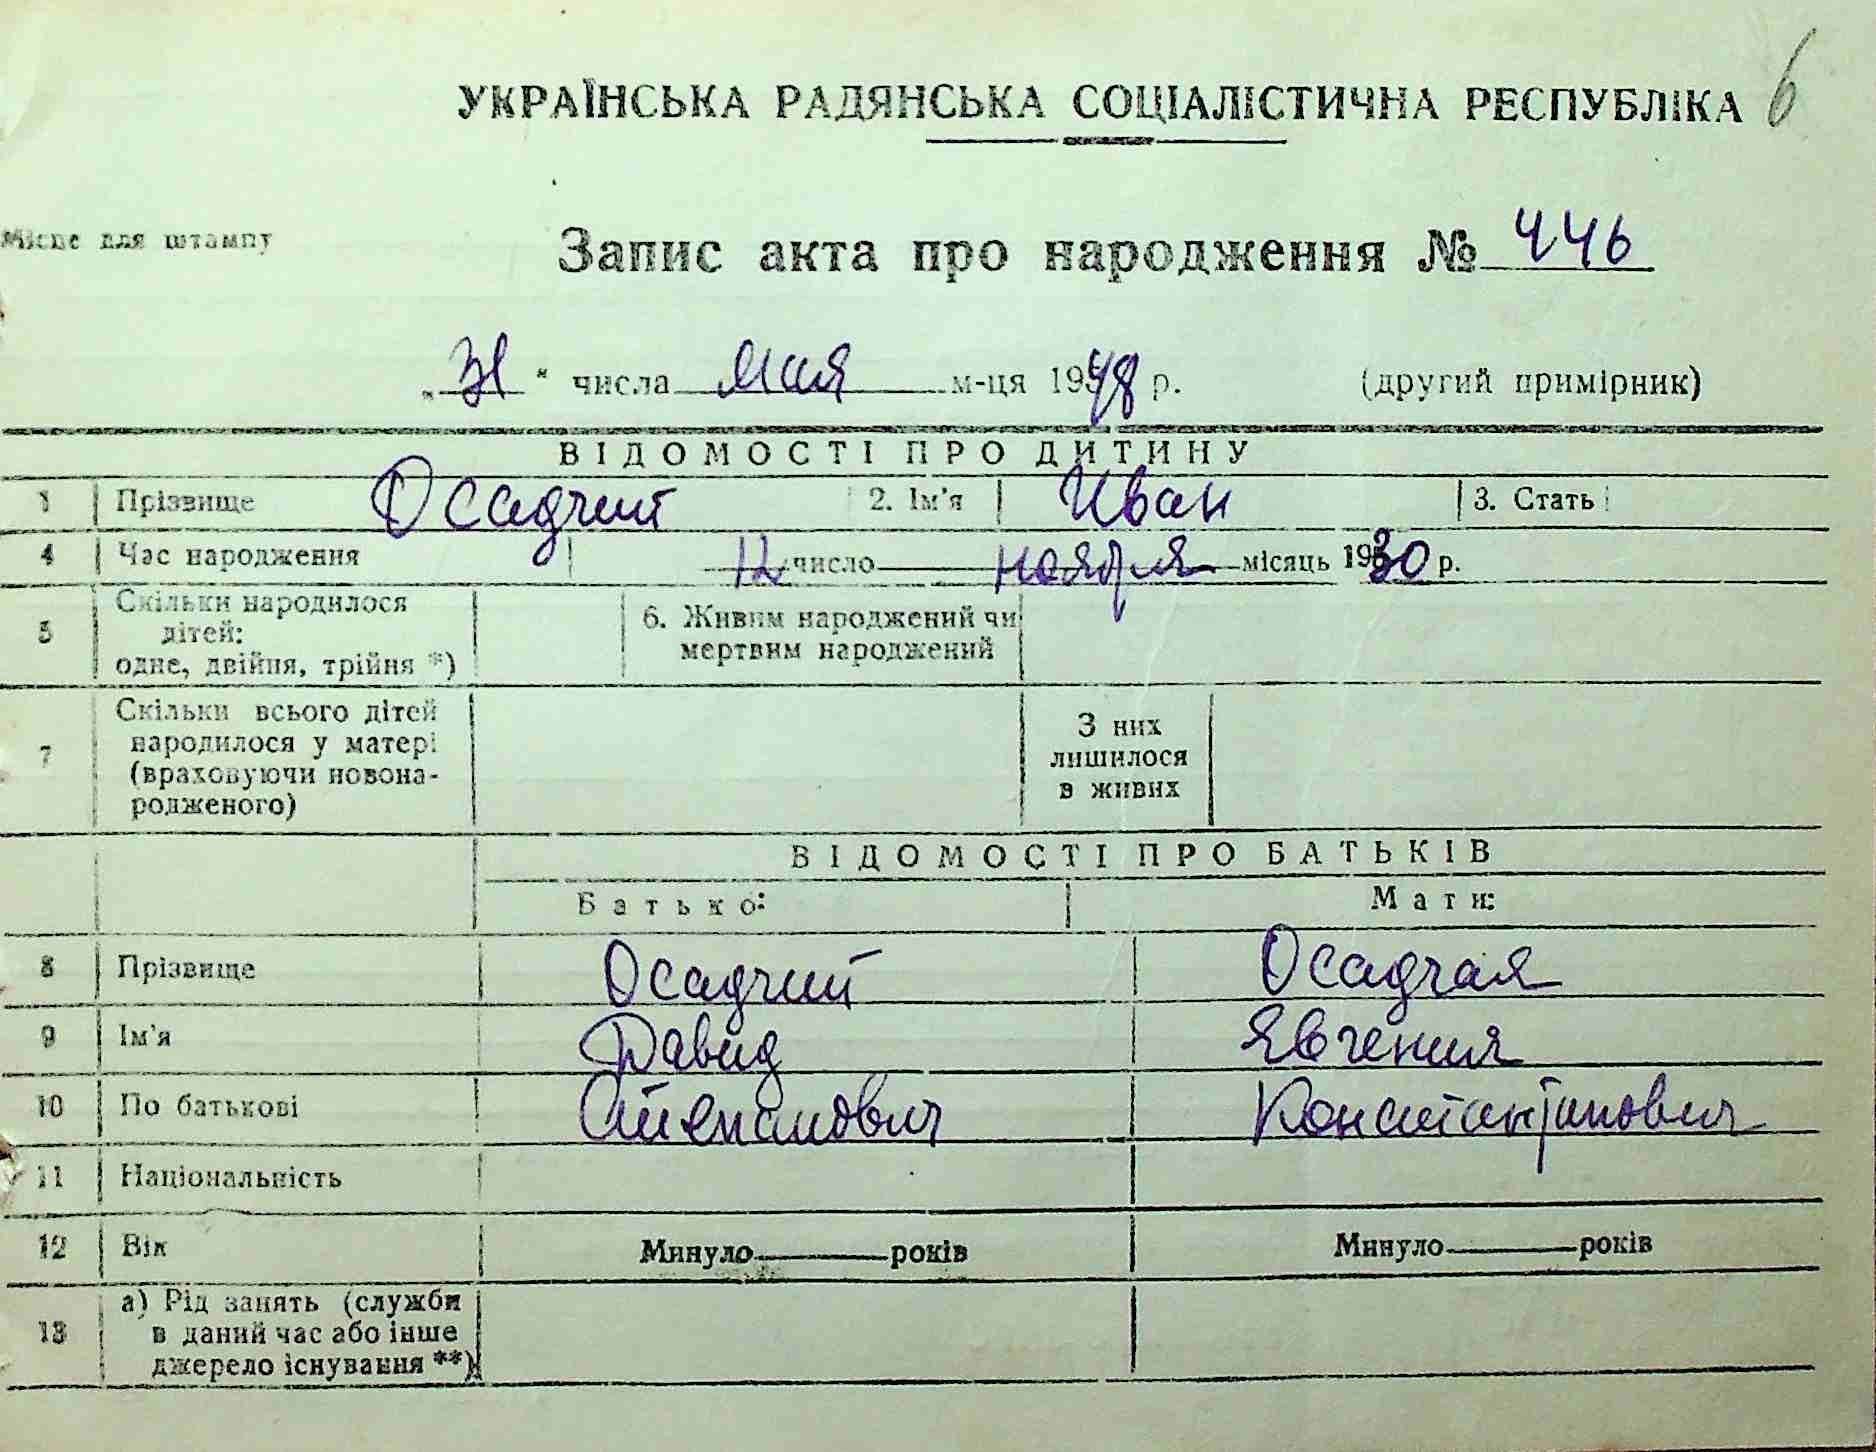 6
УКРАЇНСЬКА РАДЯНСЬКА СОЦІАЛІСТИЧНА РЕСПУБЛІКА
Місце для штампу
Запис акта про народження № 446
„31“ числа мая м-ця 1948 р. (другий примірник)
ВІДОМОСТІ ПРО ДИТИНУ
1 Прізвище Осадчий 2. Ім'я Иван 3. Стать
4 Час народження 12 число ноября місяць 1930 р.
5 Скільки народилося дітей: одне, двійня, трійня *) 6. Живим народжений чи мертвим народжений
7 Скільки всього дітей народилося у матері (враховуючи новонародженого) З них лишилося в живих
ВІДОМОСТІ ПРО БАТЬКІВ
Батько: Мати:
8 Прізвище Осадчий Осадчая
9 Ім'я Давид Явгения
10 По батькові Степанович Константинович
11 Національність
12 Вік Минуло років Минуло років
13 а) Рід занять (служби в даний час або інше джерело існування **)